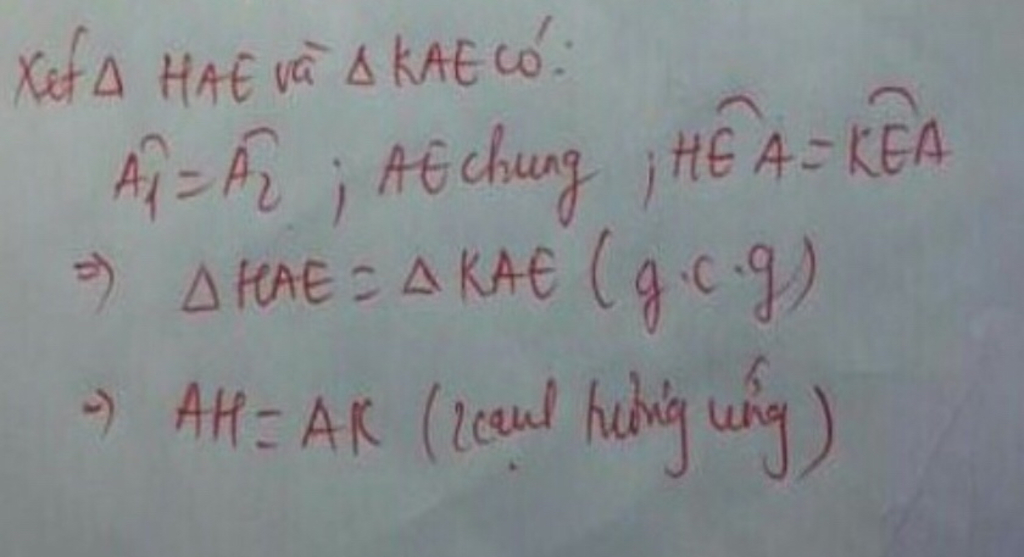 Xét Δ HAE và Δ KAE có:
Â1 = Â2 ; AE chung ; HÊA = KÊA
=> Δ HAE = Δ KAE (g.c.g)
=> AH = AK (2 cạnh tương ứng)